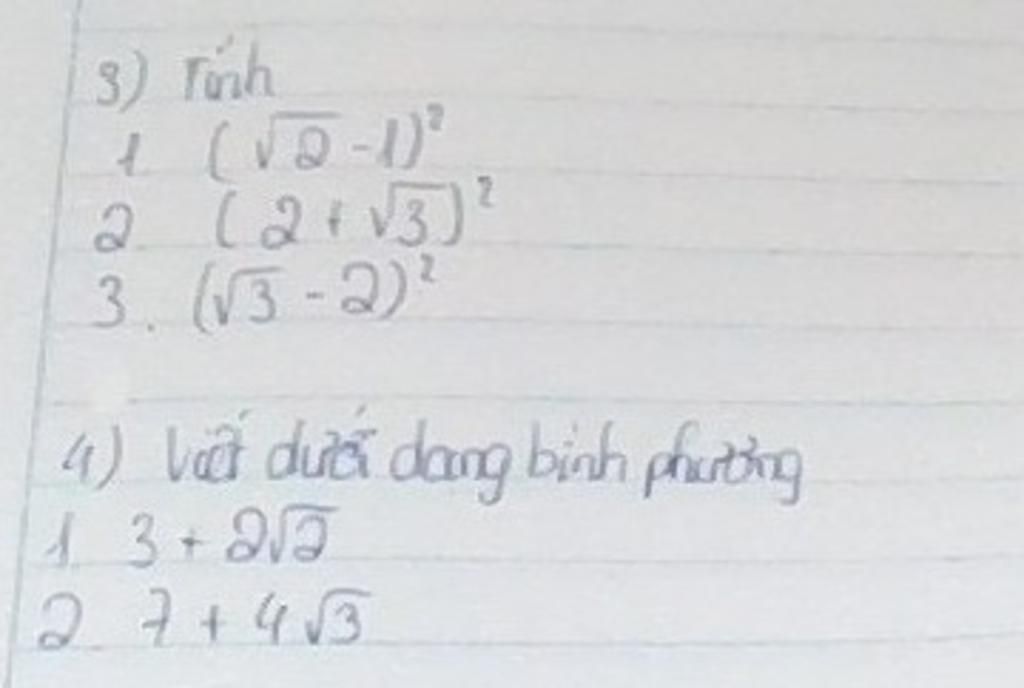 3) Tính
1 (√2 - 1)²
2. (2 + √3)²
3. (√3 - 2)²
4) Viết dưới dạng bình phương
1 3 + 2√2
2 7 + 4√3